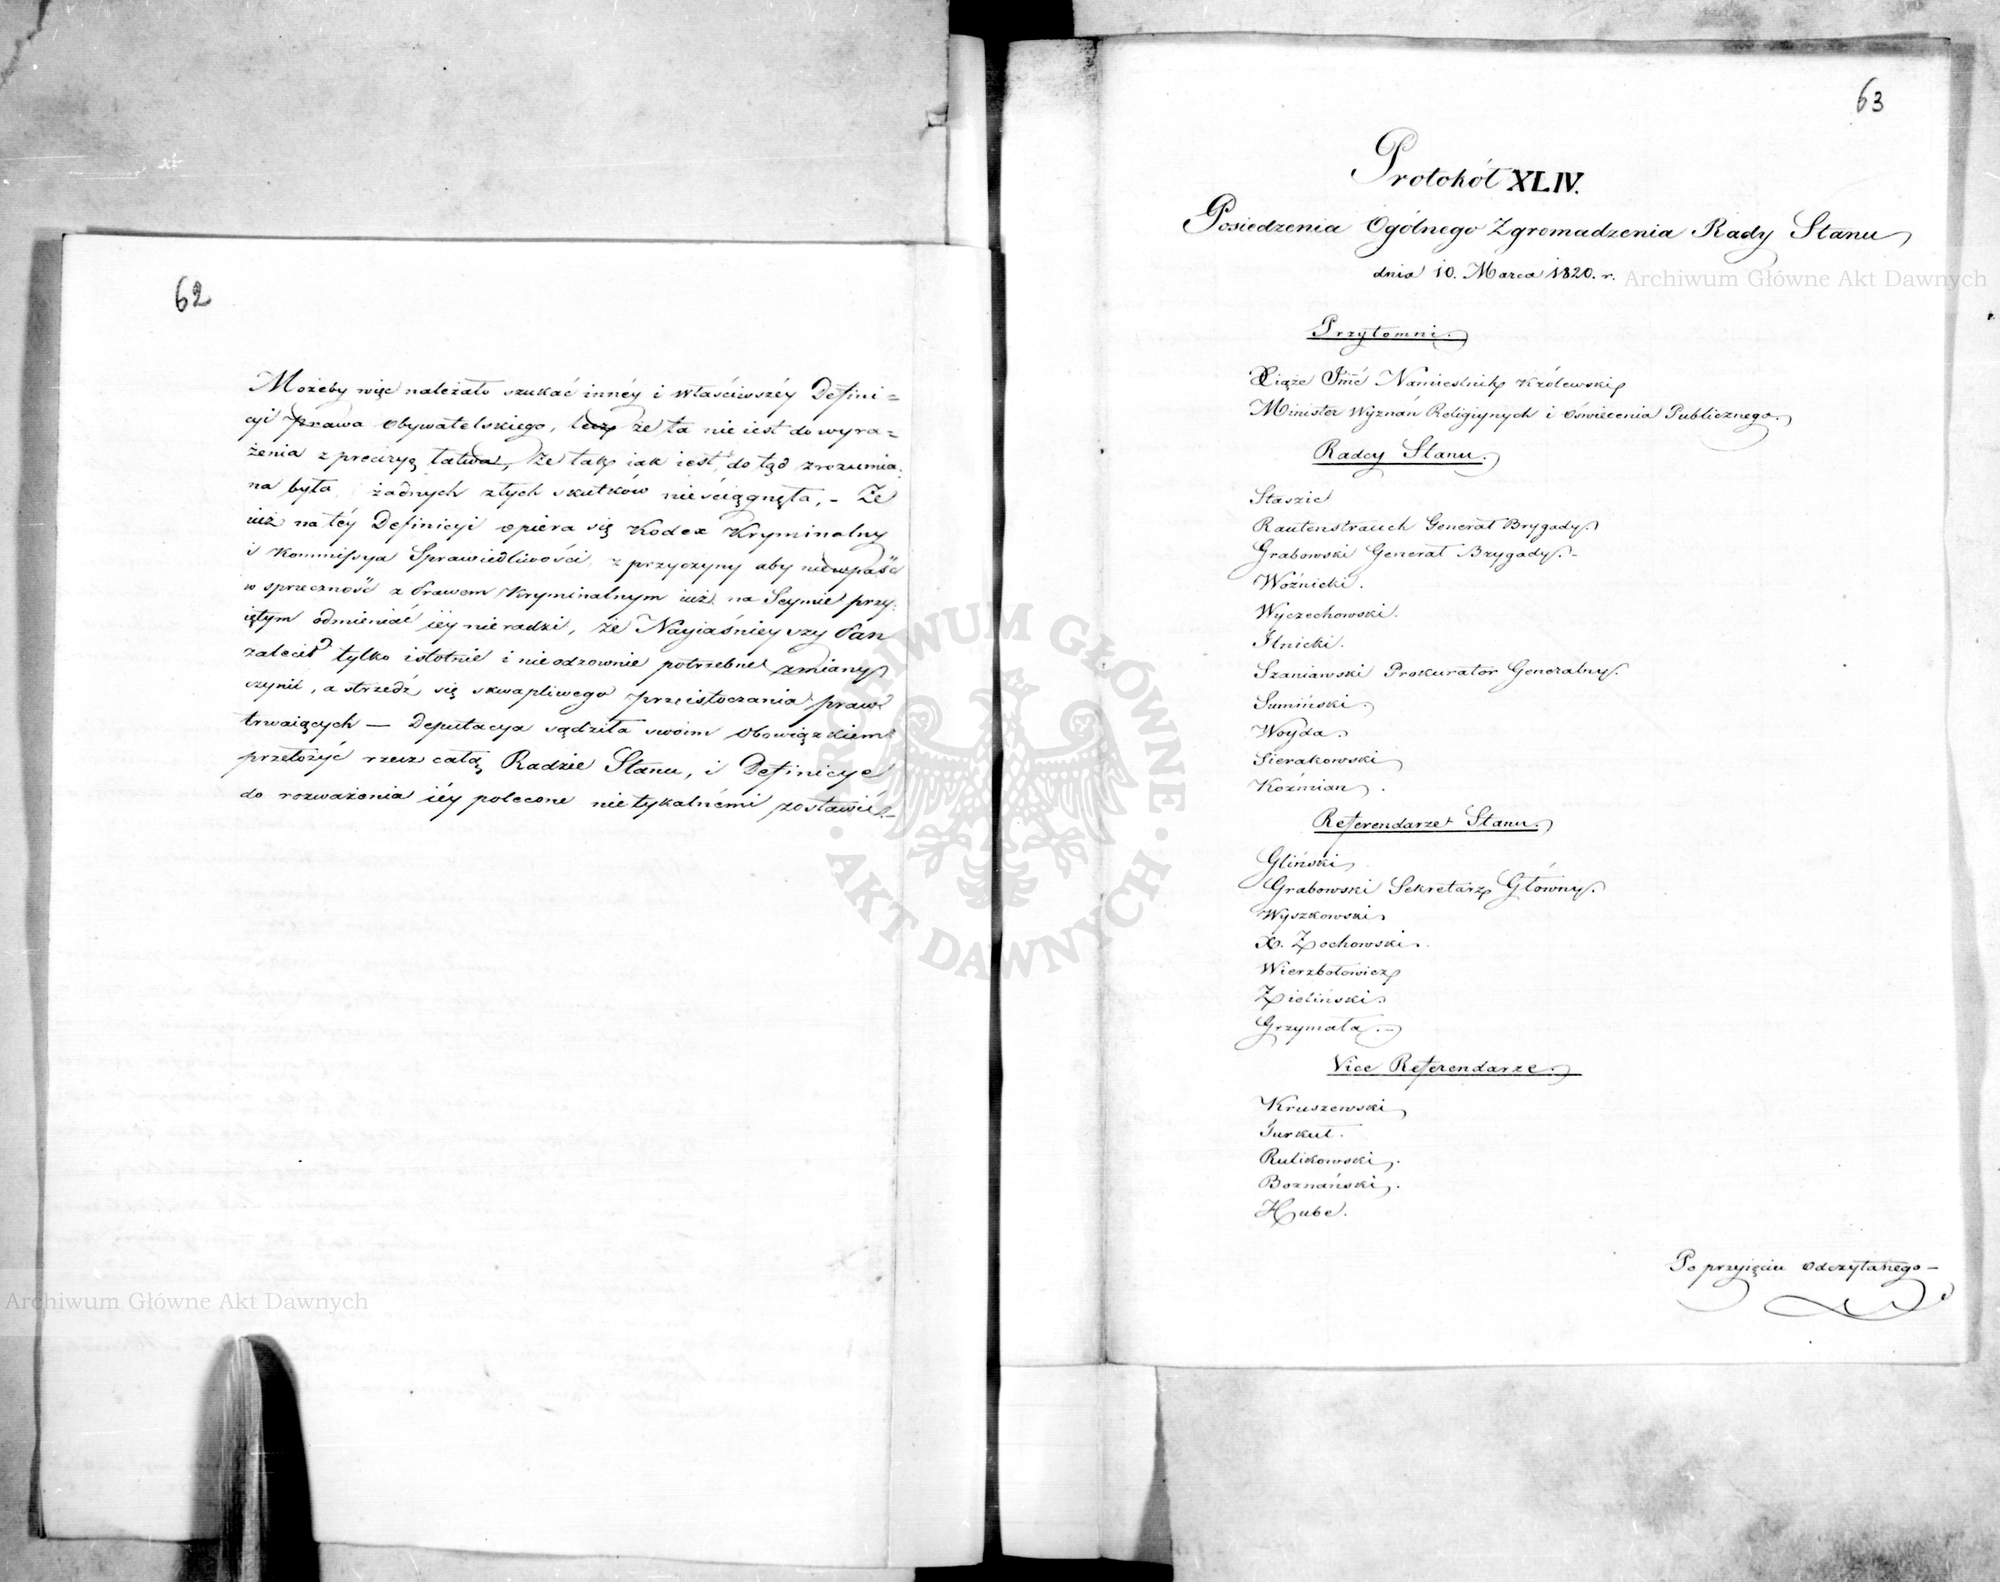 62
Możeby więc należało szukać innéy i właściwszéy Defini=
cyi Prawa Obywatelskiego, lecz że ta nie iest do wyra=
żenia z precizyą łatwa, że tak iak iest, do tąd zrozumia-
na była, żadnych złych skutków nieściągnęła, - Że
iuż na téy Definicyi opiera się Kodex Kryminalny
i Kommissya Sprawiedliwości, z przyczyny aby niewpaść
w sprzeczność z Prawem Kryminalnym iuż na Seymie przy-
iętym odmieniać iéy nieradzi, że Nayiaśnieyszy Pan
zalecił tylko istotnie i nieodzownie potrzebne zmiany
czynić, a strzedz się skwapliwego przeistoczania praw
trwaiących — Deputacya sądziła swoim obowiązkiem
przełożyć rzecz całą Radzie Stanu, i Definicye
do rozważenia iéy polecone nietykalnémi zostawić.-
63
Protokół XLIV.
Posiedzenia Ogólnego Zgromadzenia Rady Stanu
dnia 10. Marca 1820. r.
Przytomni.
Xiąże Jmć Namiestnik Królewski
Minister Wyznań Religiynych i Oświecenia Publicznego.
Radcy Stanu.
Staszic
Rautenstrauch Generał Brygady.
Grabowski Generał Brygady.-
Woźnicki.
Wyczechowski.
Ilnicki.
Szaniawski Prokurator Generalny.
Sumiński.
Woyda.
Sierakowski
Koźmian.
Referendarze Stanu.
Gliński
Grabowski Sekretarz Główny.
Wyszkowski
X. Żochowski.
Wierzbołowicz
Zieliński.
Grzymała.-
Vice Referendarze.
Kruszewski
Turkuł.
Rulikowski.
Boznański.
Hube.
Po przyięciu odczytanego-
Archiwum Główne Akt Dawnych
Archiwum Główne Akt Dawnych
ARCHIWUM GŁÓWNE · AKT DAWNYCH ·